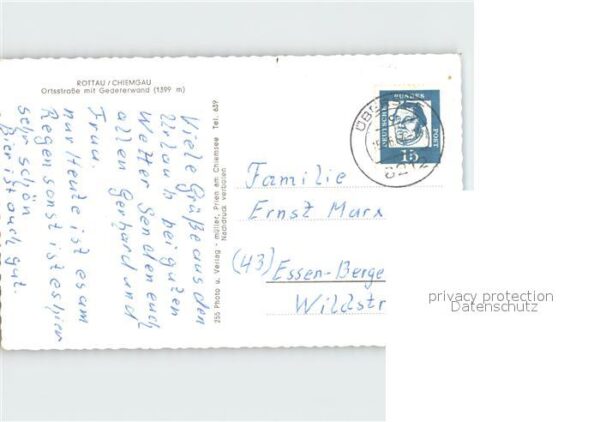 ROTTAU / CHIEMGAU
Ortsstraße mit Gedererwand (1399 m)
Viele Grüße aus den
Urlaub bei guten
Wetter Senden euch
allen Gerhard und
Frau.
nur Heute ist es am
Regen sonst ist es hier
sehr schön
Bier ist auch gut.
255 Photo u. Verlag - müller, Prien am Chiemsee Tel. 639
Nachdruck verboten
DEUTSCHE
BUNDES
POST
15
8212
Familie
Ernst Marx
(43) Essen-Berge
Wildstr
privacy protection
Datenschutz